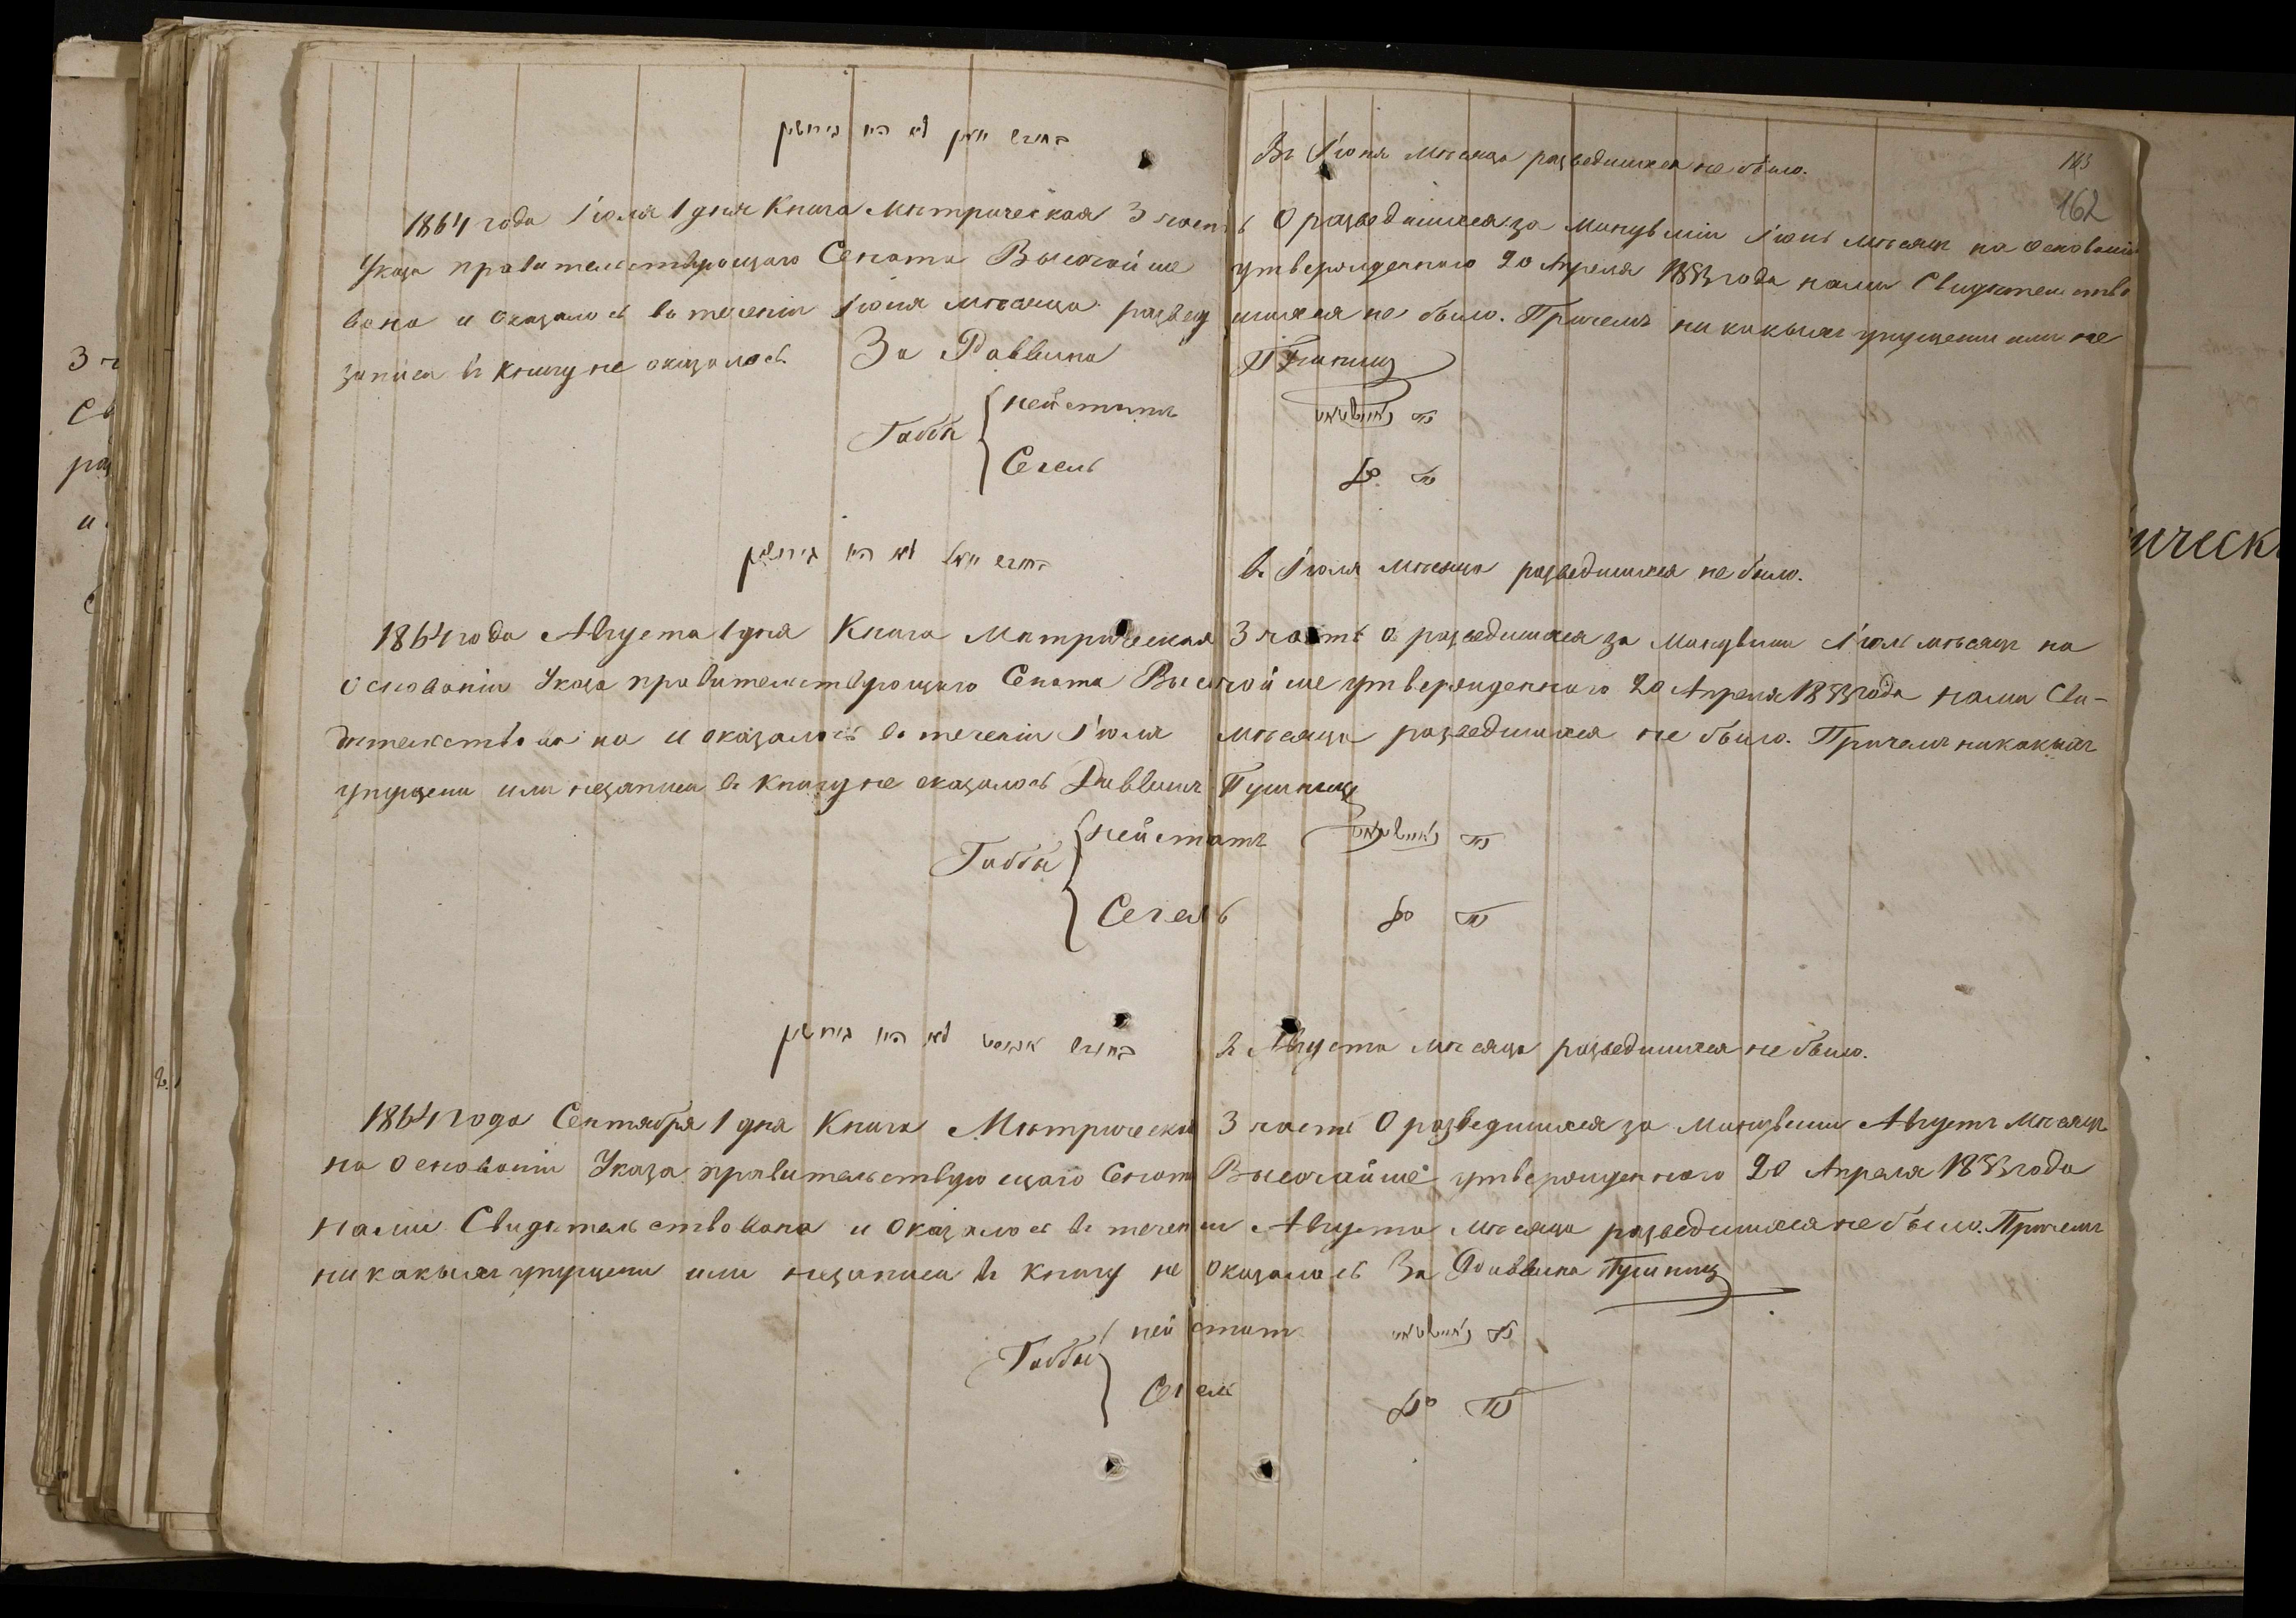 בחודש יוני לא היו גירושין
Въ Іюня мѣсяца разведшихся не было.
163
162
1864 года Іюля 1 дня Книга Метрическая 3 часть О разведшихся за минувшій Іюнь мѣсяцъ на основаніи
Указа правительствующаго Сената Высочайше утвержденнаго 20 Апрѣля 1853 года нами Свидѣтельство
вана и оказалось въ теченіи Іюня мѣсяца разведшихся не было. Причемъ никакихъ упущеній или не
записи въ книгу не оказалось За Раввина
Габбы
Нейстатъ
Сегель
בחודש יולי לא היו גירושין
въ Іюля мѣсяца разведшихся не было.
1864 года Августа 1 дня Книга Метрическая 3 часть о разведшихся за минувшій Іюль мѣсяцъ на
основаніи Указа правительствующаго Сената Высочайше утвержденнаго 20 Апрѣля 1853 года нами Сви-
дѣтельствована и оказалось въ теченіи Іюля мѣсяца разведшихся не было. Причемъ никакихъ
упущеній или незаписи въ книгу не оказалось Раввинъ
Габбы
Нейстатъ
Сегель
בחודש אוגוסט לא היו גירושין
въ Августа мѣсяца разведшихся не было.
1864 года Сентября 1 дня Книга Метрическая 3 часть О разведшихся за минувшій Августъ мѣсяцъ
на основаніи Указа правительствующаго Сената Высочайше утвержденнаго 20 Апрѣля 1853 года
нами Свидѣтельствована и оказалось въ теченіи Августа мѣсяца разведшихся не было. Причемъ
никакихъ упущеній или незаписи въ книгу не оказалось За Раввина
Габбы
Нейстатъ
Сегель